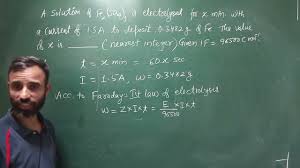 A solution of Fe₂(SO₄)₃ is electrolysed for x min. with
a current of 1.5A to deposit 0.3482 g of Fe. The value
of x is ____ (nearest integer) Given 1F = 96500 C mol⁻¹
t = x min = 60x sec
I = 1.5A, w = 0.3482 g
Acc. to Faraday Ist law of electrolysis
W = Z×I×t = E/96500 × I×t